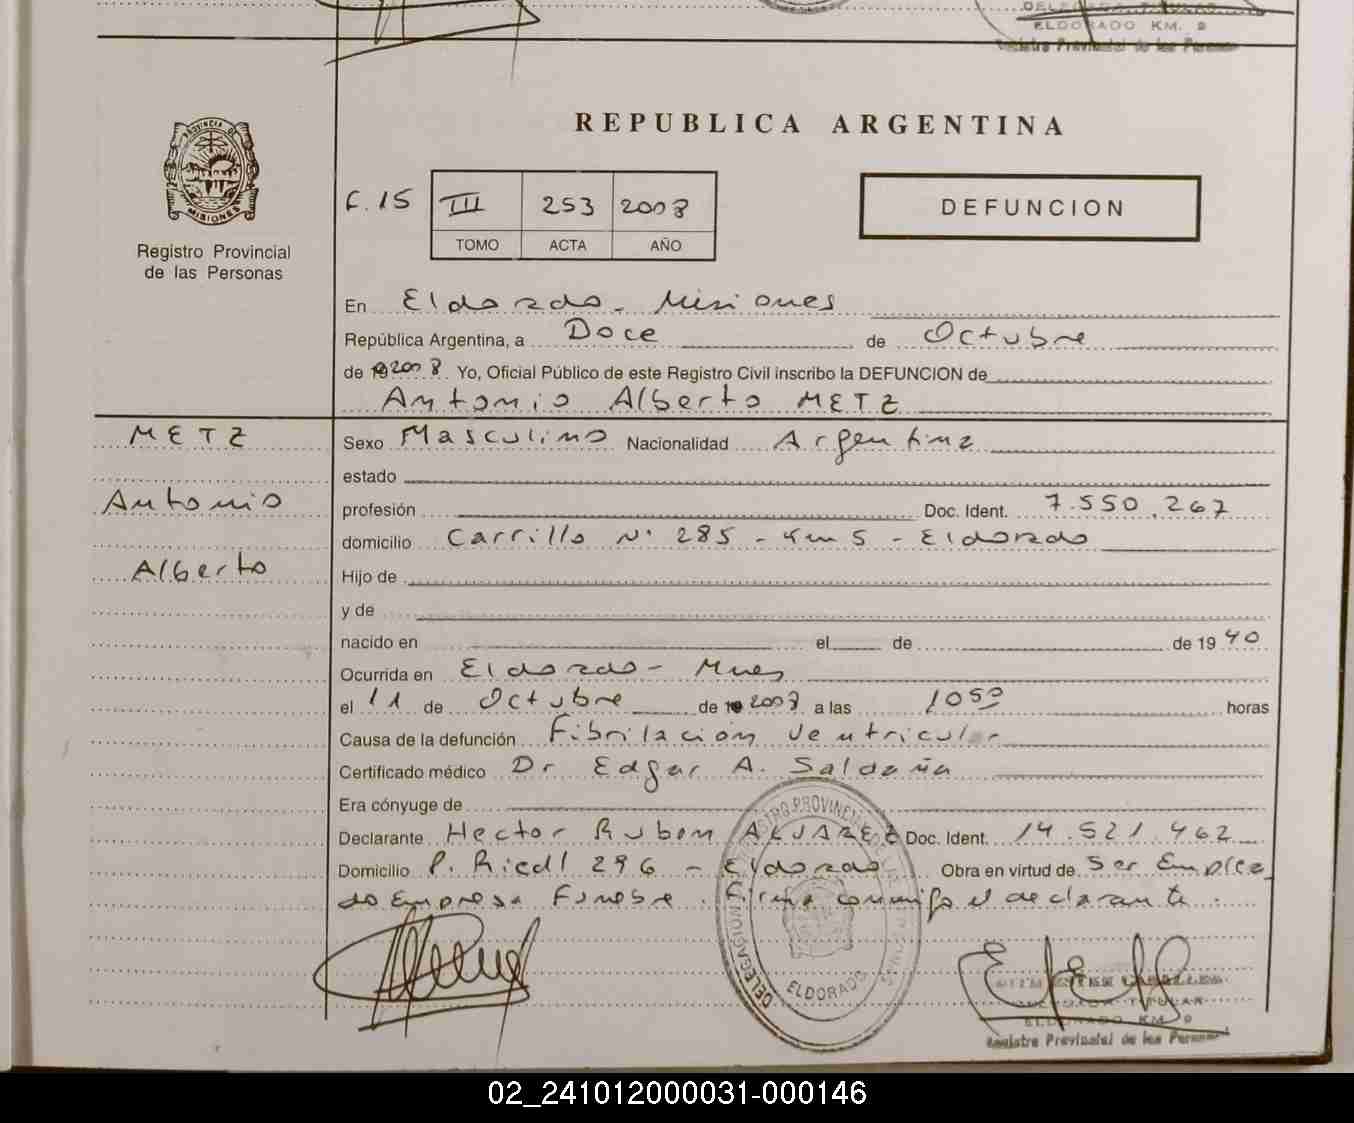 DELEGADA TITULAR
ELDORADO KM. 9
Registro Provincial de las Personas
PROVINCIA DE
MISIONES
Registro Provincial
de las Personas
REPUBLICA ARGENTINA
F. 15 III 253 2008
TOMO ACTA AÑO
DEFUNCION
En Eldorado - Misiones
República Argentina, a Doce de Octubre
de 2008 Yo, Oficial Público de este Registro Civil inscribo la DEFUNCION de
Antonio Alberto METZ
METZ
Antonio
Alberto
Sexo Masculino Nacionalidad Argentina
estado
profesión Doc. Ident. 7.550.267
domicilio Carrillo N° 285 - Km 5 - Eldorado
Hijo de
y de
nacido en el de de 1940
Ocurrida en Eldorado - Mnes
el 11 de Octubre de 2008 a las 10 50 horas
Causa de la defunción Fibrilación Ventricular
Certificado médico Dr Edgar A. Saldaña
Era cónyuge de
Declarante Hector Ruben ALVAREZ Doc. Ident. 14.521.462
Domicilio P. Riedl 296 - Eldorado Obra en virtud de Ser Emplea
do Empresa Funebre. Firma conmigo el declarante.
DELEGACION
REGISTRO PROVINCIAL DE LAS PERSONAS
ELDORADO
DELEGADA TITULAR
ELDORADO KM. 9
Registro Provincial de las Personas
02_241012000031-000146